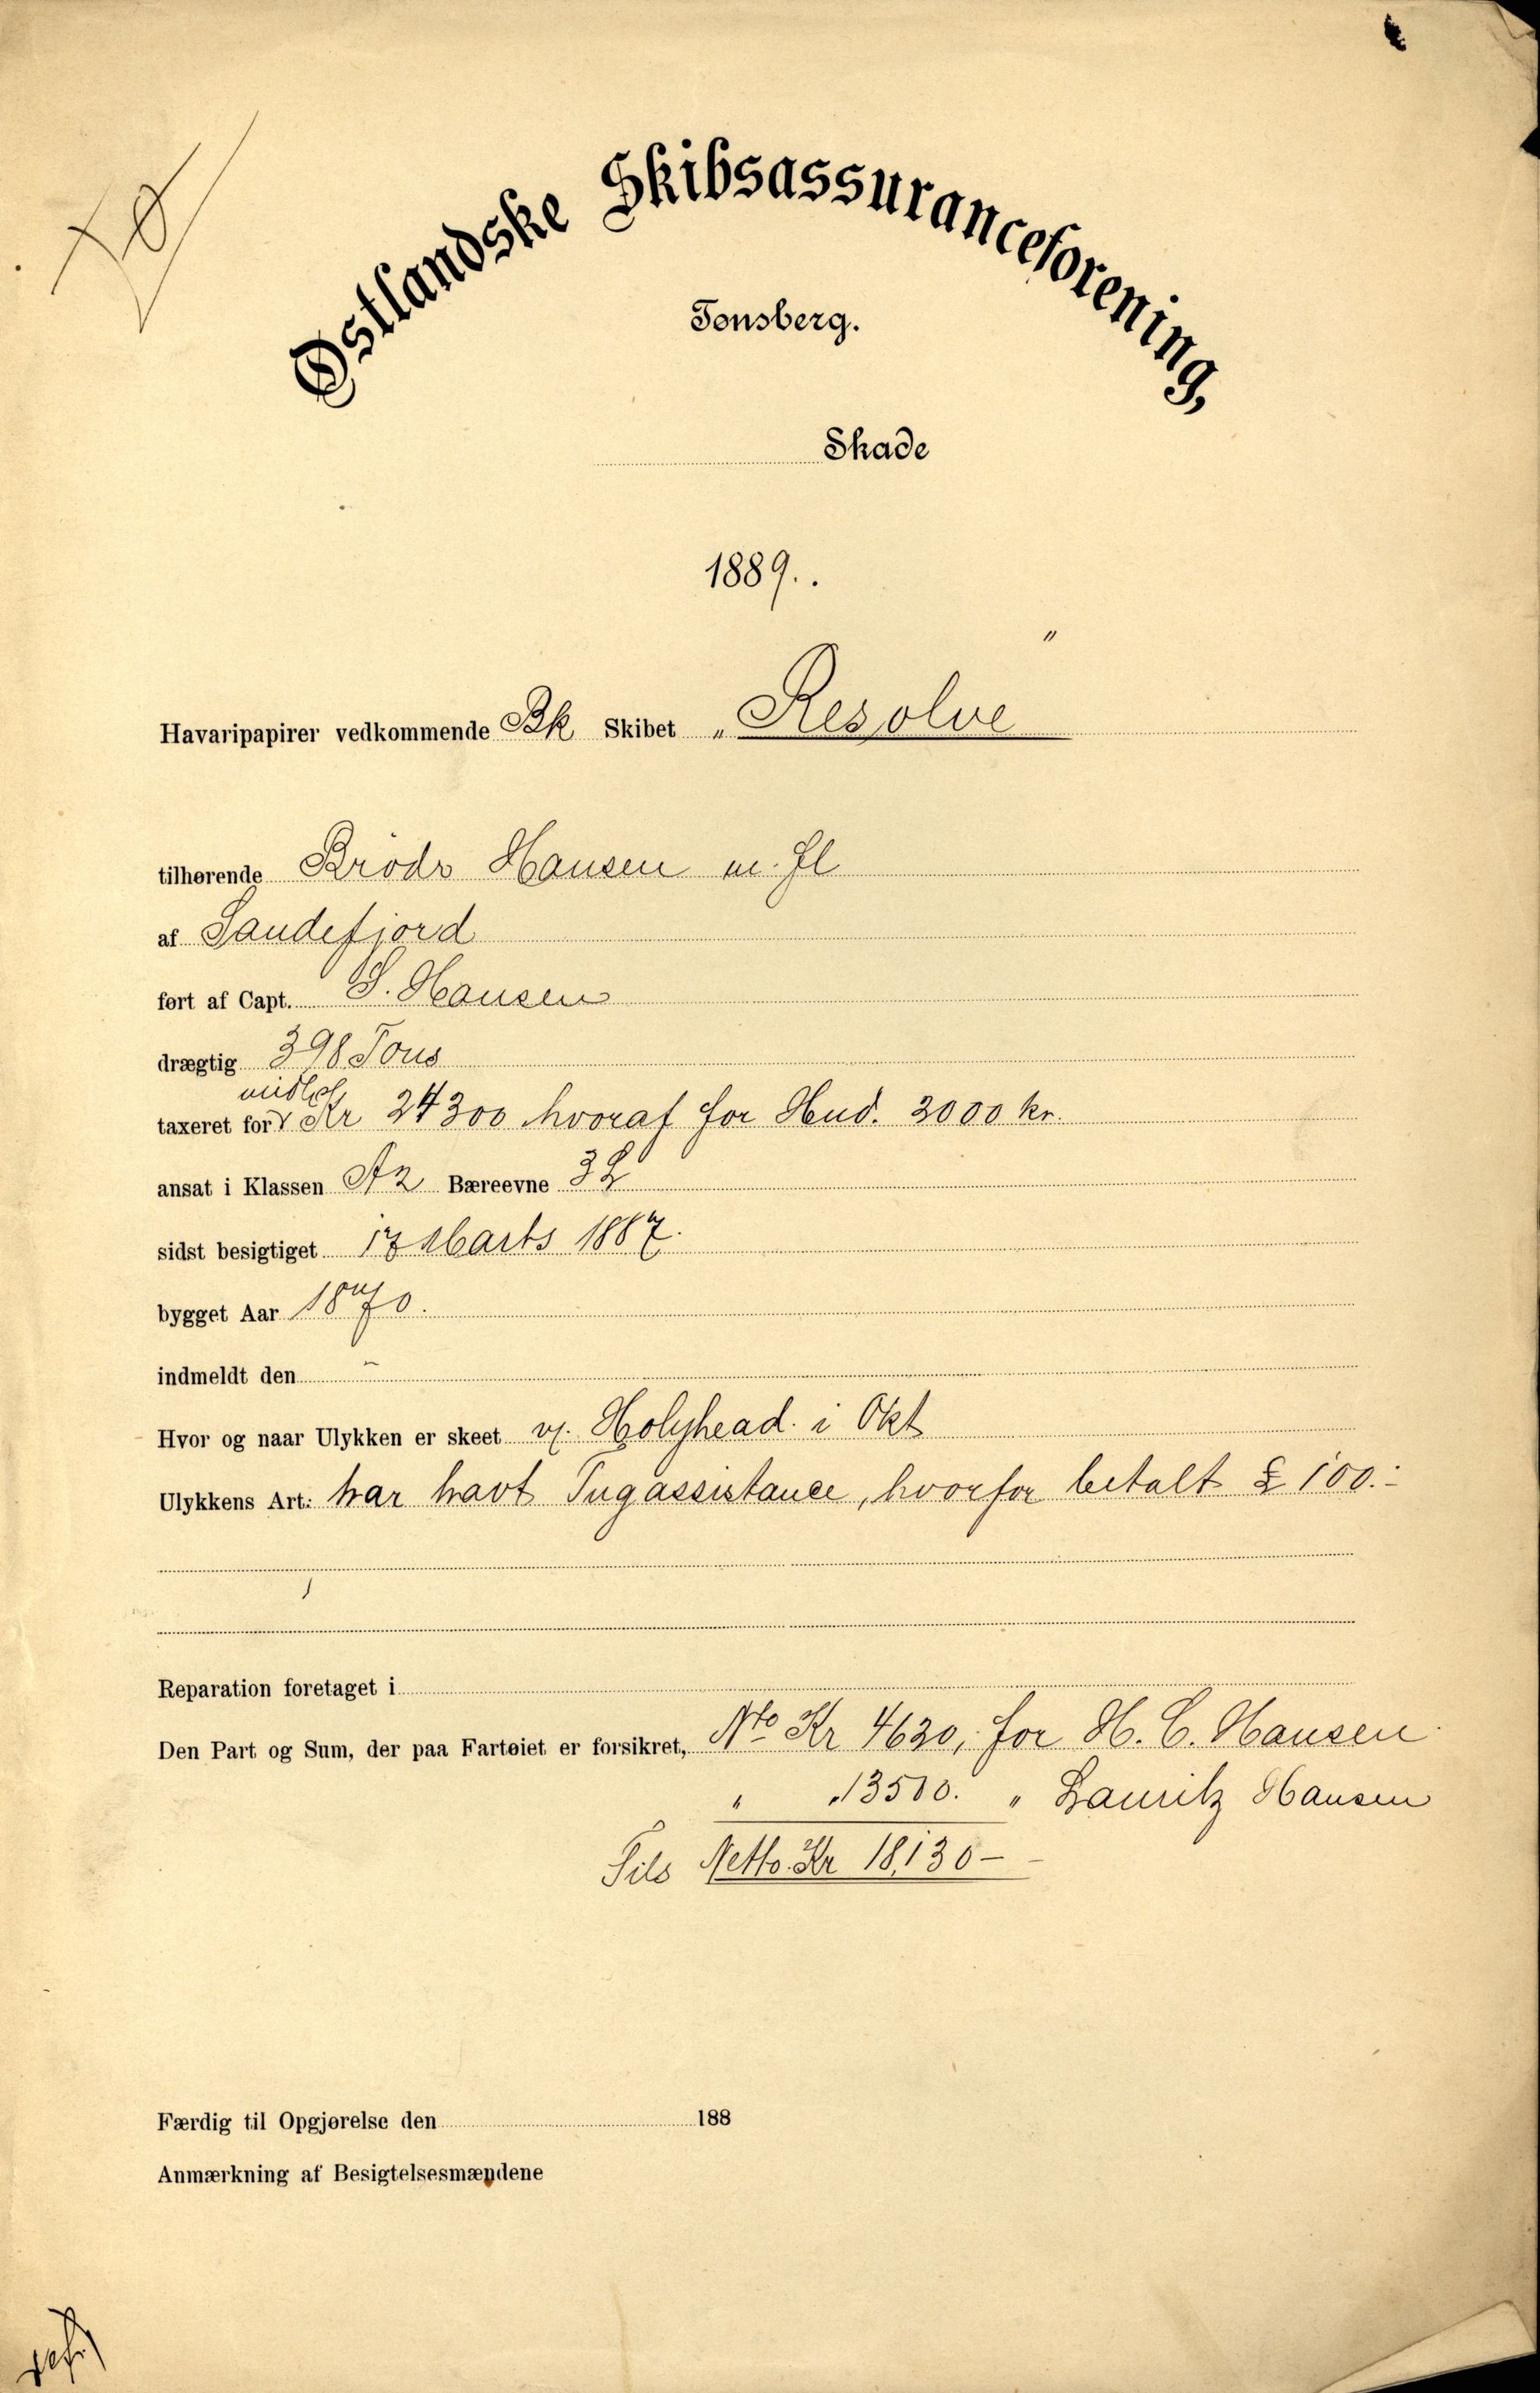 Østlandske Skibsassuranceforening,
Tønsberg.
Skade
1889.
Havaripapirer vedkommende Bk Skibet „Resolve"
tilhørende Brødr Hansen m. fl
af Sandefjord
ført af Capt. S. Hansen
drægtig 398 Tons
midl.
taxeret for Kr 24300 hvoraf for Hud. 2000 kr.
ansat i Klassen A2 Bæreevne
sidst besigtiget 17 Marts 1887.
bygget Aar 1870.
indmeldt den
Hvor og naar Ulykken er skeet v/. Holyhead. i Okt
Ulykkens Art: har havt Tugassistance, hvorfor betalt £ 100.-
Reparation foretaget i
Den Part og Sum, der paa Fartøiet er forsikret, Nto Kr 4630, for H. C. Hansen
" „13500. " Lauritz Hansen
Tils Netto Kr 18,130 -
Færdig til Opgjørelse den 188
Anmærkning af Besigtelsesmændene